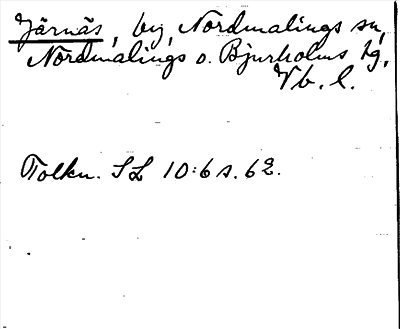 Järnäs, by, Nordmalings sn,
Nordmalings o. Bjurholms tg,
Vb. l.
Tolkn. SL 10:6 s. 62.